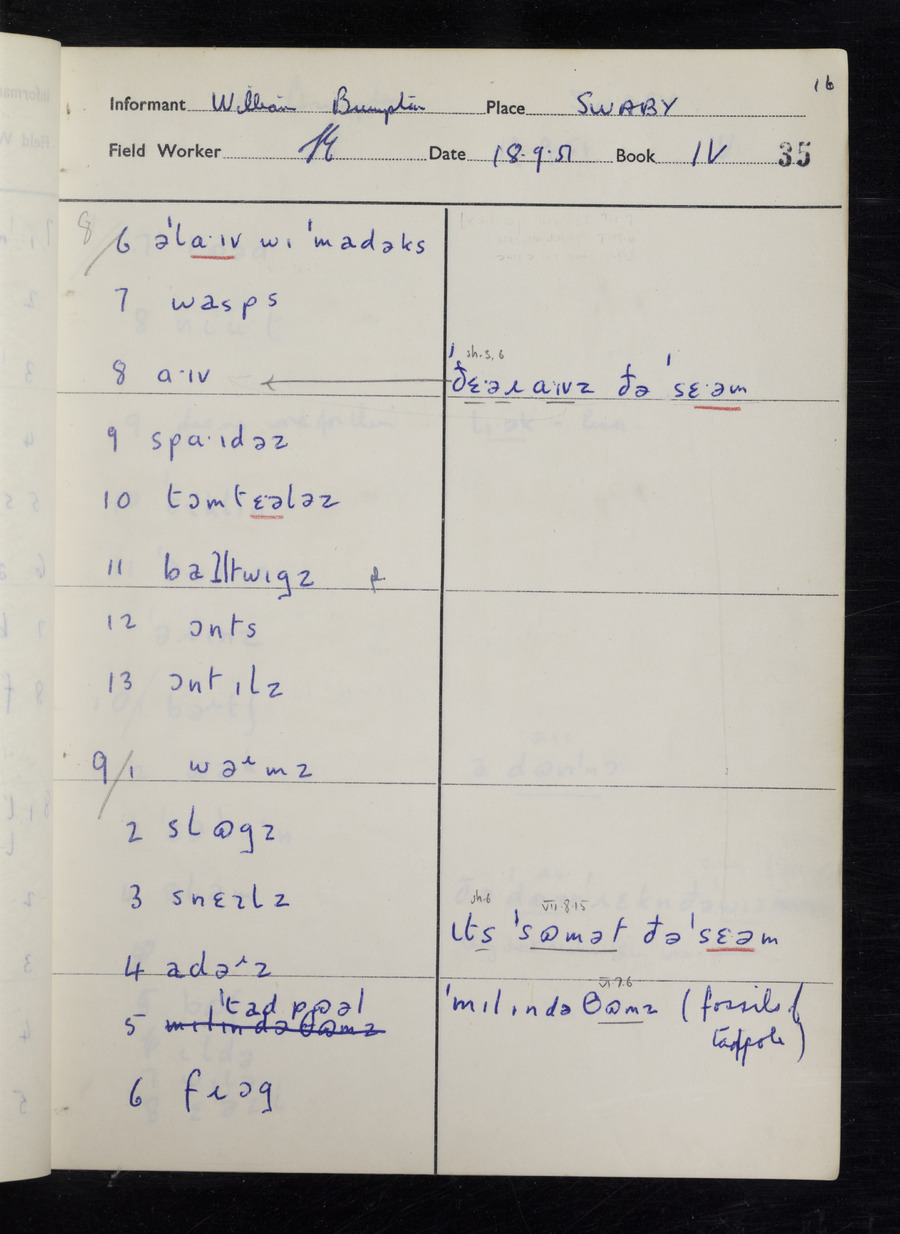 16
Informant William Brumpton Place SWABY
Field Worker Date 18.9.51 Book IV 35
8/6 ə'la·ɪv wɪ 'madəks
7 wasps
8 a·ɪv
sh.5,6
'ðɛ·əɹ a·ɪvz ðə 'sɛ·əm
9 spa·ɪdəz
10 tɔmtɛələz
11 baɪtwɪgz
12 ɔnts
13 ɔntɪlz
9/1 wəɹmz
2 slɷgz
3 snɛɪlz
sh.6 VII.8.15
ɪts 'sɷmət ðə 'sɛəm
4 adəɹz
5 'tadpɷəl
mɪlɪndəθɷmz
VI.7.6
'mɪlɪndəθɷmz (fossil of
tadpole)
6 fɹɔg